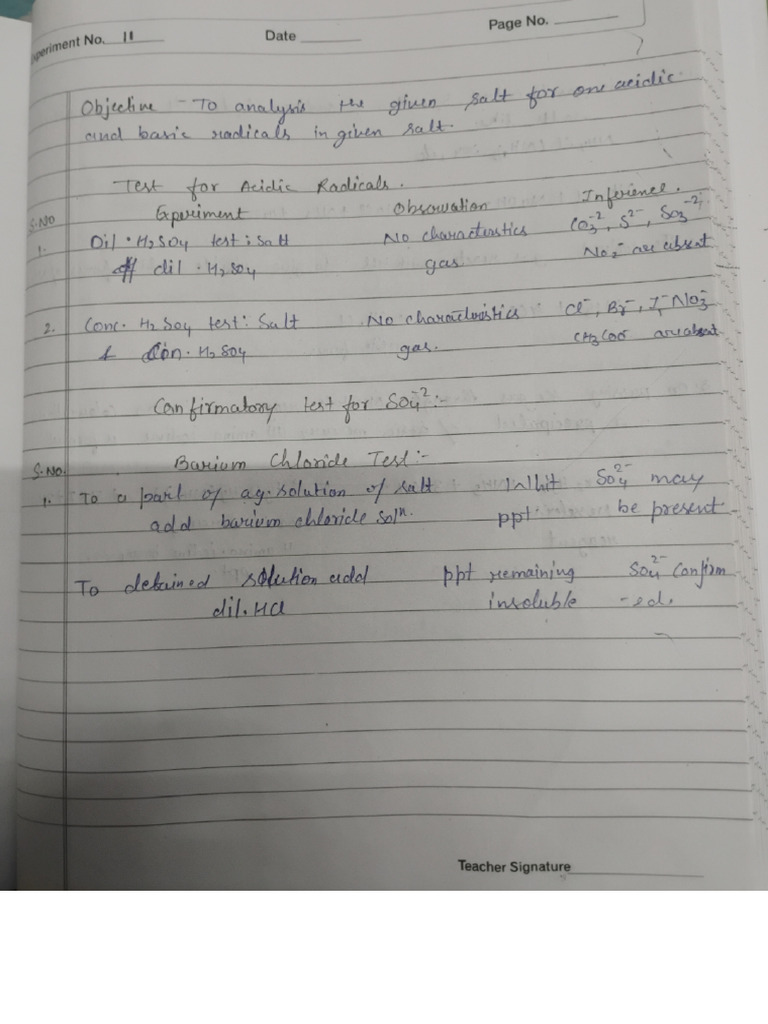 Experiment No. 11 Date Page No.
Objective - To analysis the given salt for one acidic
and basic radicals in given salt.
Test for Acidic Radicals.
S.NO Experiment Obsowation Inference.
1. Dil. H2SO4 test: Salt No characteristics CO3-2, S2-, SO3-2,
dil. H2SO4 gas. NO2- are absent
2. Conc. H2SO4 test: Salt No characteristics Cl-, Br-, I-, NO3-
& Con. H2SO4 gas. CH3COO- are absent
Confirmatory test for SO4-2:-
Barium Chloride Test:-
S.No.
1. To a part of aq. solution of salt Whit SO42- may
add barium chloride soln. ppt. be present
To detained solution add ppt remaining SO42- Confirm
dil. HCl insoluble -ed.
Teacher Signature